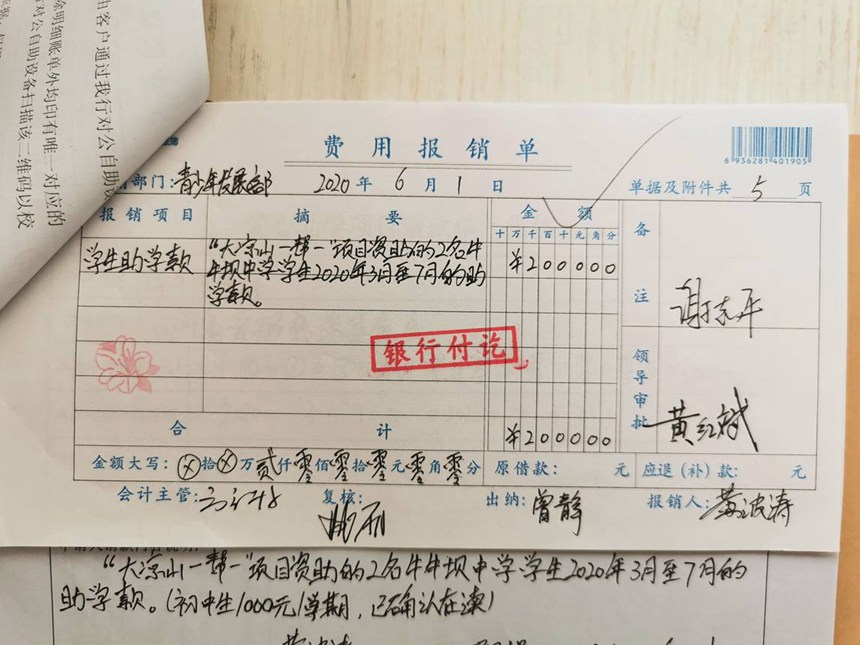 由客户通过我行对公自助设
除明细账单外均印有唯一对应的
对公自助设备扫描该二维码以校
费用报销单
6 936281 401905
部门：青少年发展部
2020年6月1日
单据及附件共5页
报销项目
摘要
金额
十万千百十元角分
备注
学生助学款
“大凉山一帮一”项目资助的2名牛
牛坝中学学生2020年3月至7月的助
学款。
¥200000
银行付讫
领导审批
黄红斌
合计
¥200000
金额大写：⊗拾⊗万贰仟零佰零拾零元零角零分
原借款：元
应退（补）款：元
会计主管：
复核：
出纳：曾静
报销人：
“大凉山一帮一”项目资助的2名牛牛坝中学学生2020年3月至7月的
助学款。（初中生1000元/学期，已确认在读）